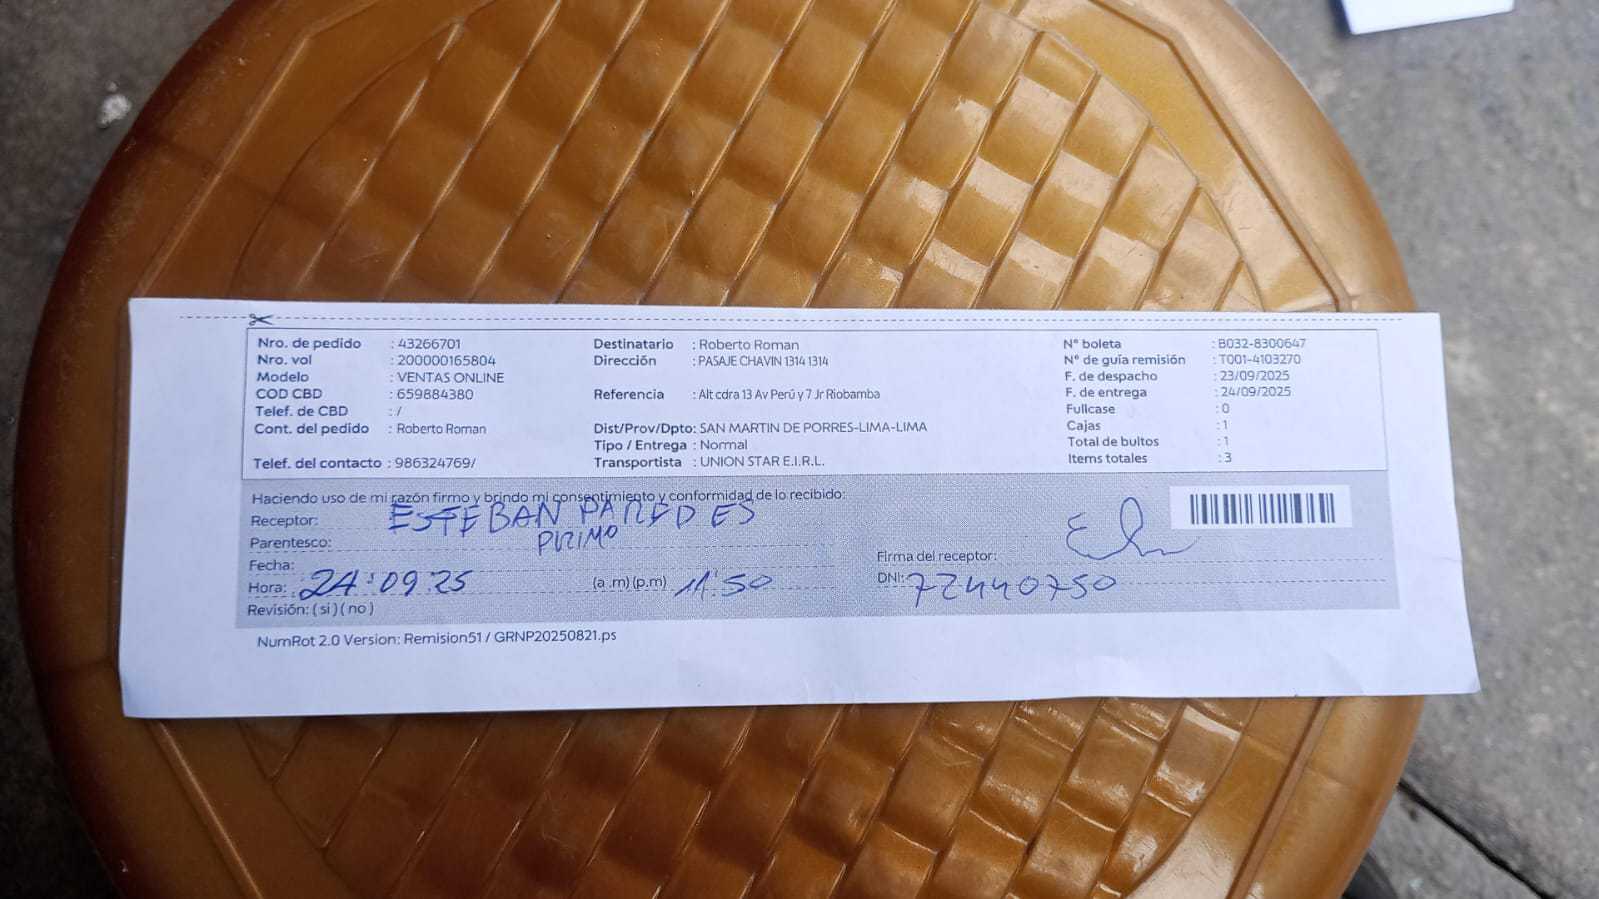 Nro. de pedido : 43266701
Nro. vol : 200000165804
Modelo : VENTAS ONLINE
COD CBD : 659884380
Telef. de CBD : /
Cont. del pedido : Roberto Roman
Telef. del contacto : 986324769/
Destinatario : Roberto Roman
Dirección : PASAJE CHAVIN 1314 1314
Referencia : Alt cdra 13 Av Perú y 7 Jr Riobamba
Dist/Prov/Dpto: SAN MARTIN DE PORRES-LIMA-LIMA
Tipo / Entrega : Normal
Transportista : UNION STAR E.I.R.L.
N° boleta : B032-8300647
N° de guía remisión : T001-4103270
F. de despacho : 23/09/2025
F. de entrega : 24/09/2025
Fullcase : 0
Cajas : 1
Total de bultos : 1
Items totales : 3
Haciendo uso de mi razón firmo y brindo mi consentimiento y conformidad de lo recibido:
Receptor: ESTEBAN PAREDES
Parentesco: PRIMO
Fecha:
Hora: 24:09.25 (a .m) (p.m) 11:50
Revisión: ( si ) ( no )
Firma del receptor:
DNI: 72440750
NumRot 2.0 Version: Remision51 / GRNP20250821.ps